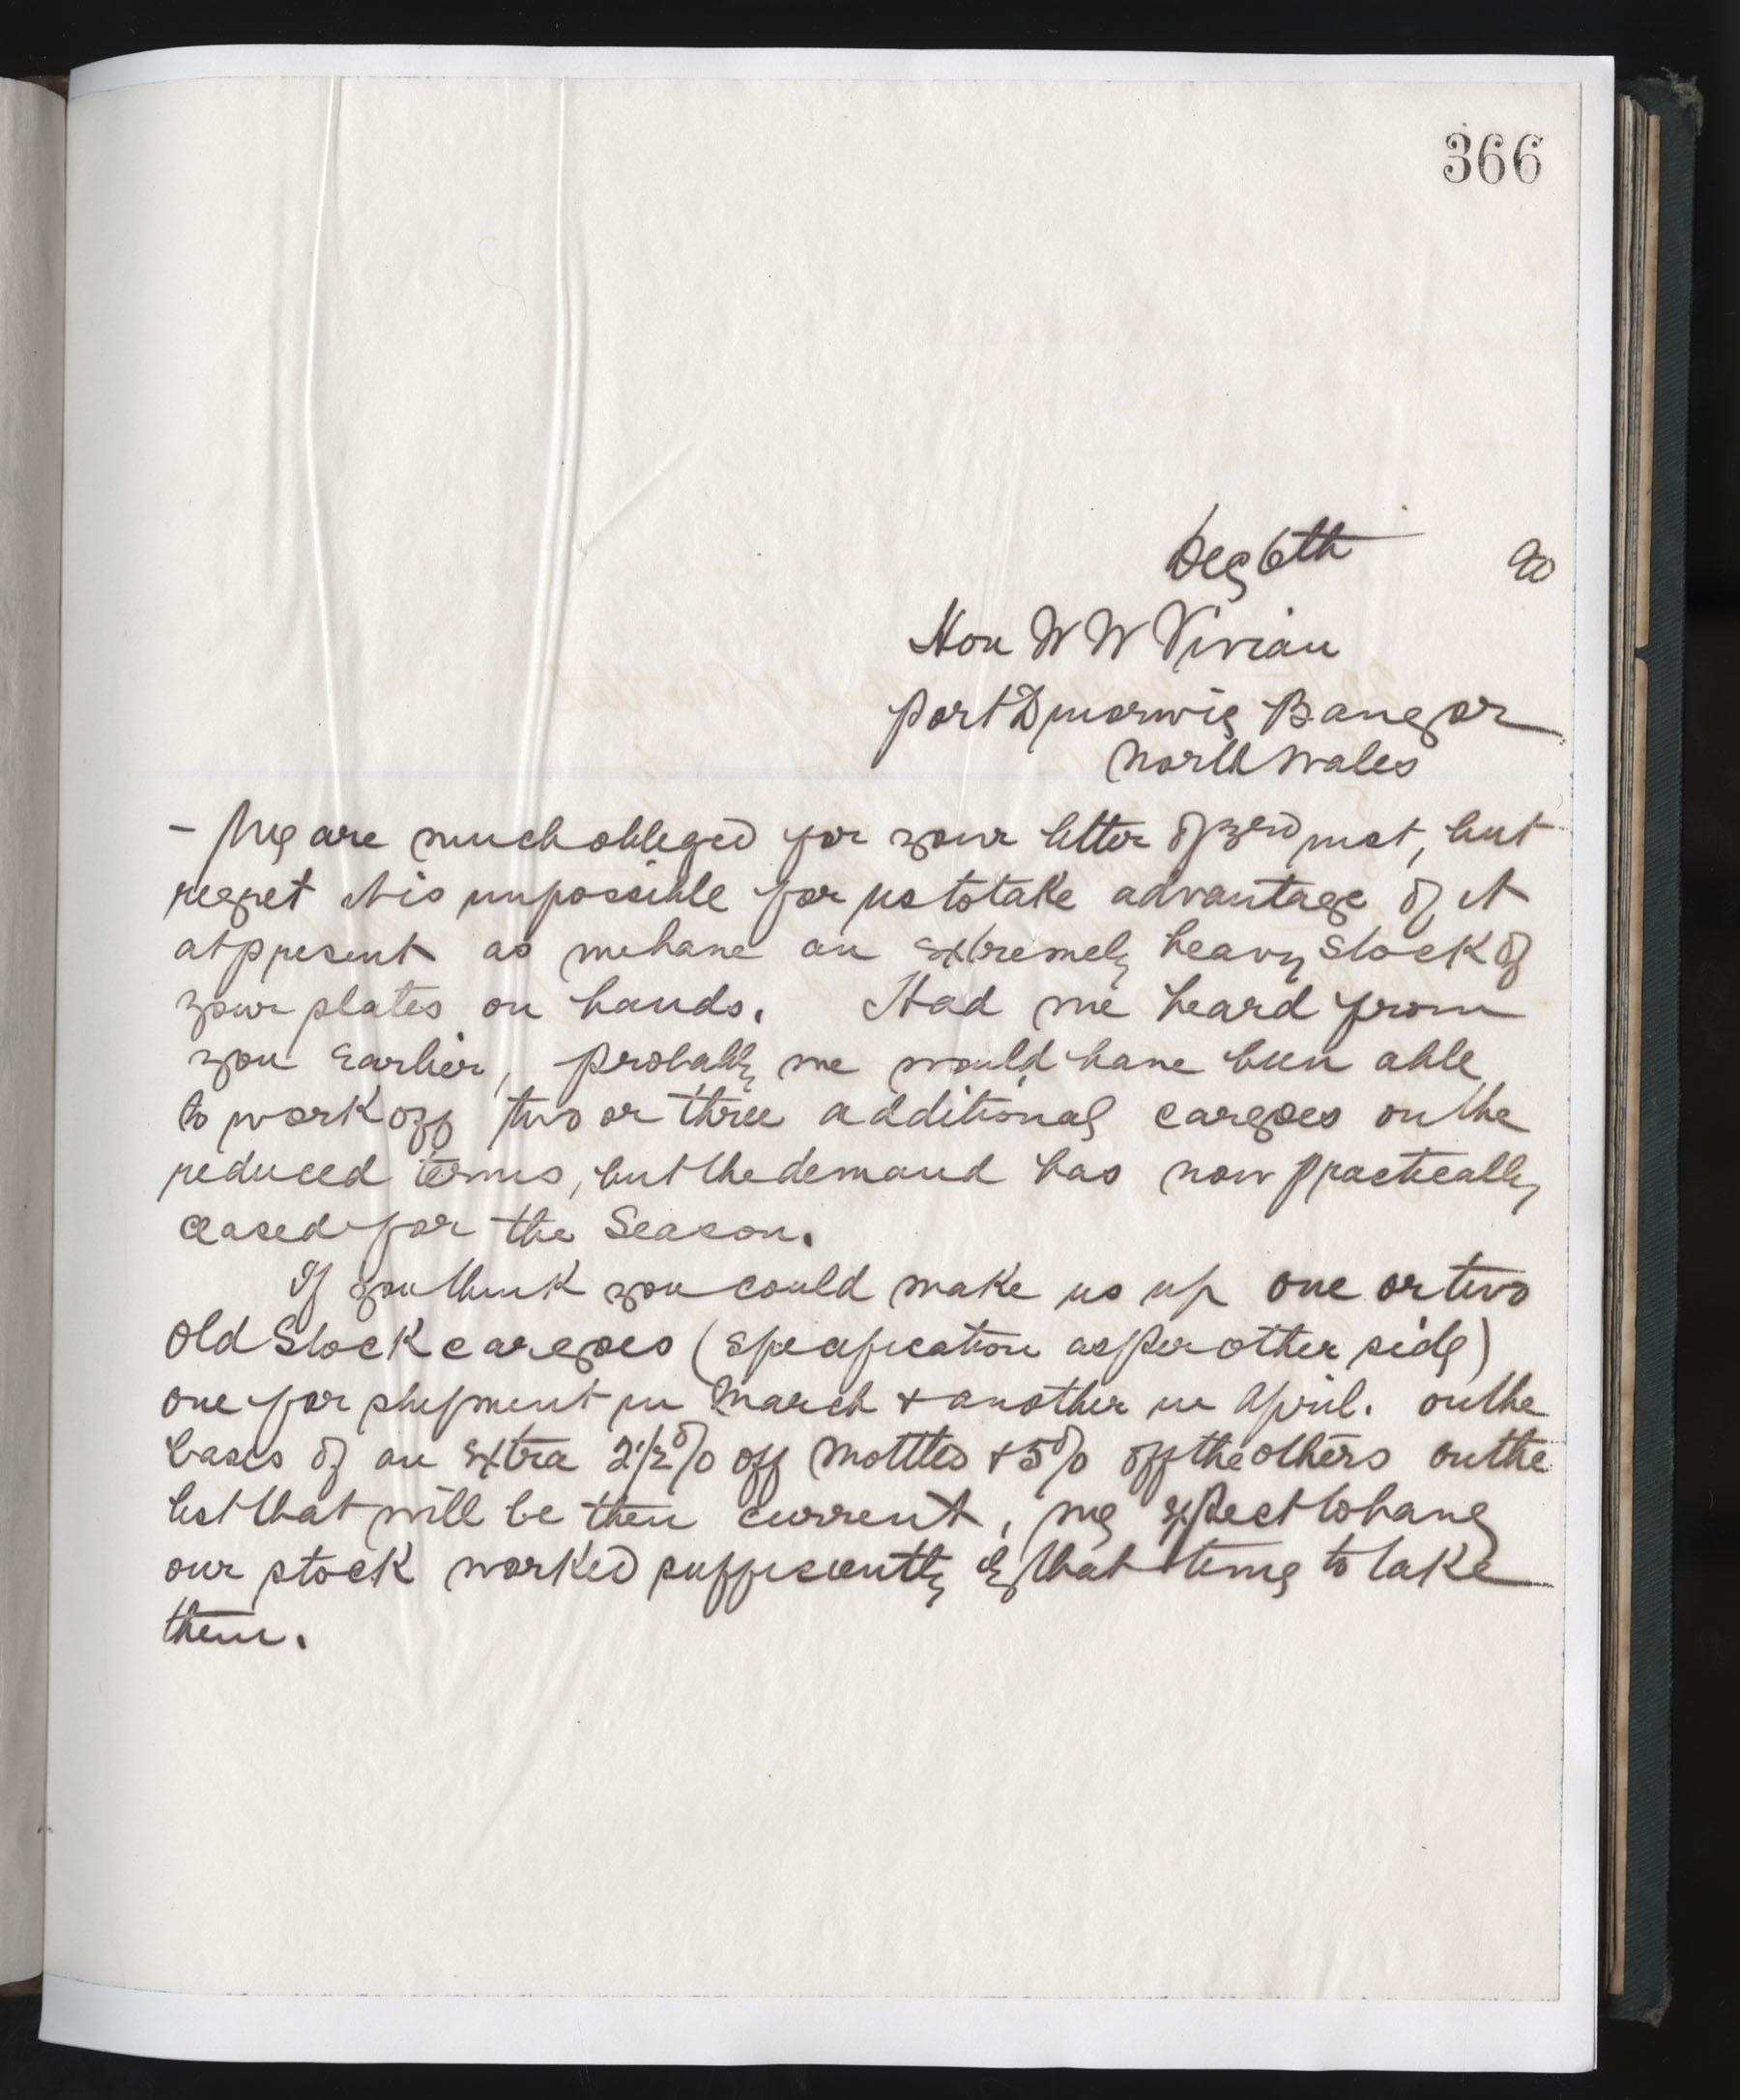 366
Dec 6th 90
Hon W W Vivian
Port Dinorwic Bangor
North Wales
- We are much obliged for your letter of 3rd inst, but
regret it is impossible for us to take advantage of it
at present as we have an extremely heavy stock of
your plates on hands. Had we heard from
you Earlier, probably we would have been able
to work off two or three additional cargoes on the
reduced terms, but the demand has now practically
ceased for the Season.
If you think you could make us up one or two
Old Stock cargoes (specification as per other side)
one for shipment in March & another in April. on the
basis of an Extra 2 1/2 % off Mottles & 5% off the others on the
list that will be then current, we expect to have
our stock worked sufficiently by that time to take
them.